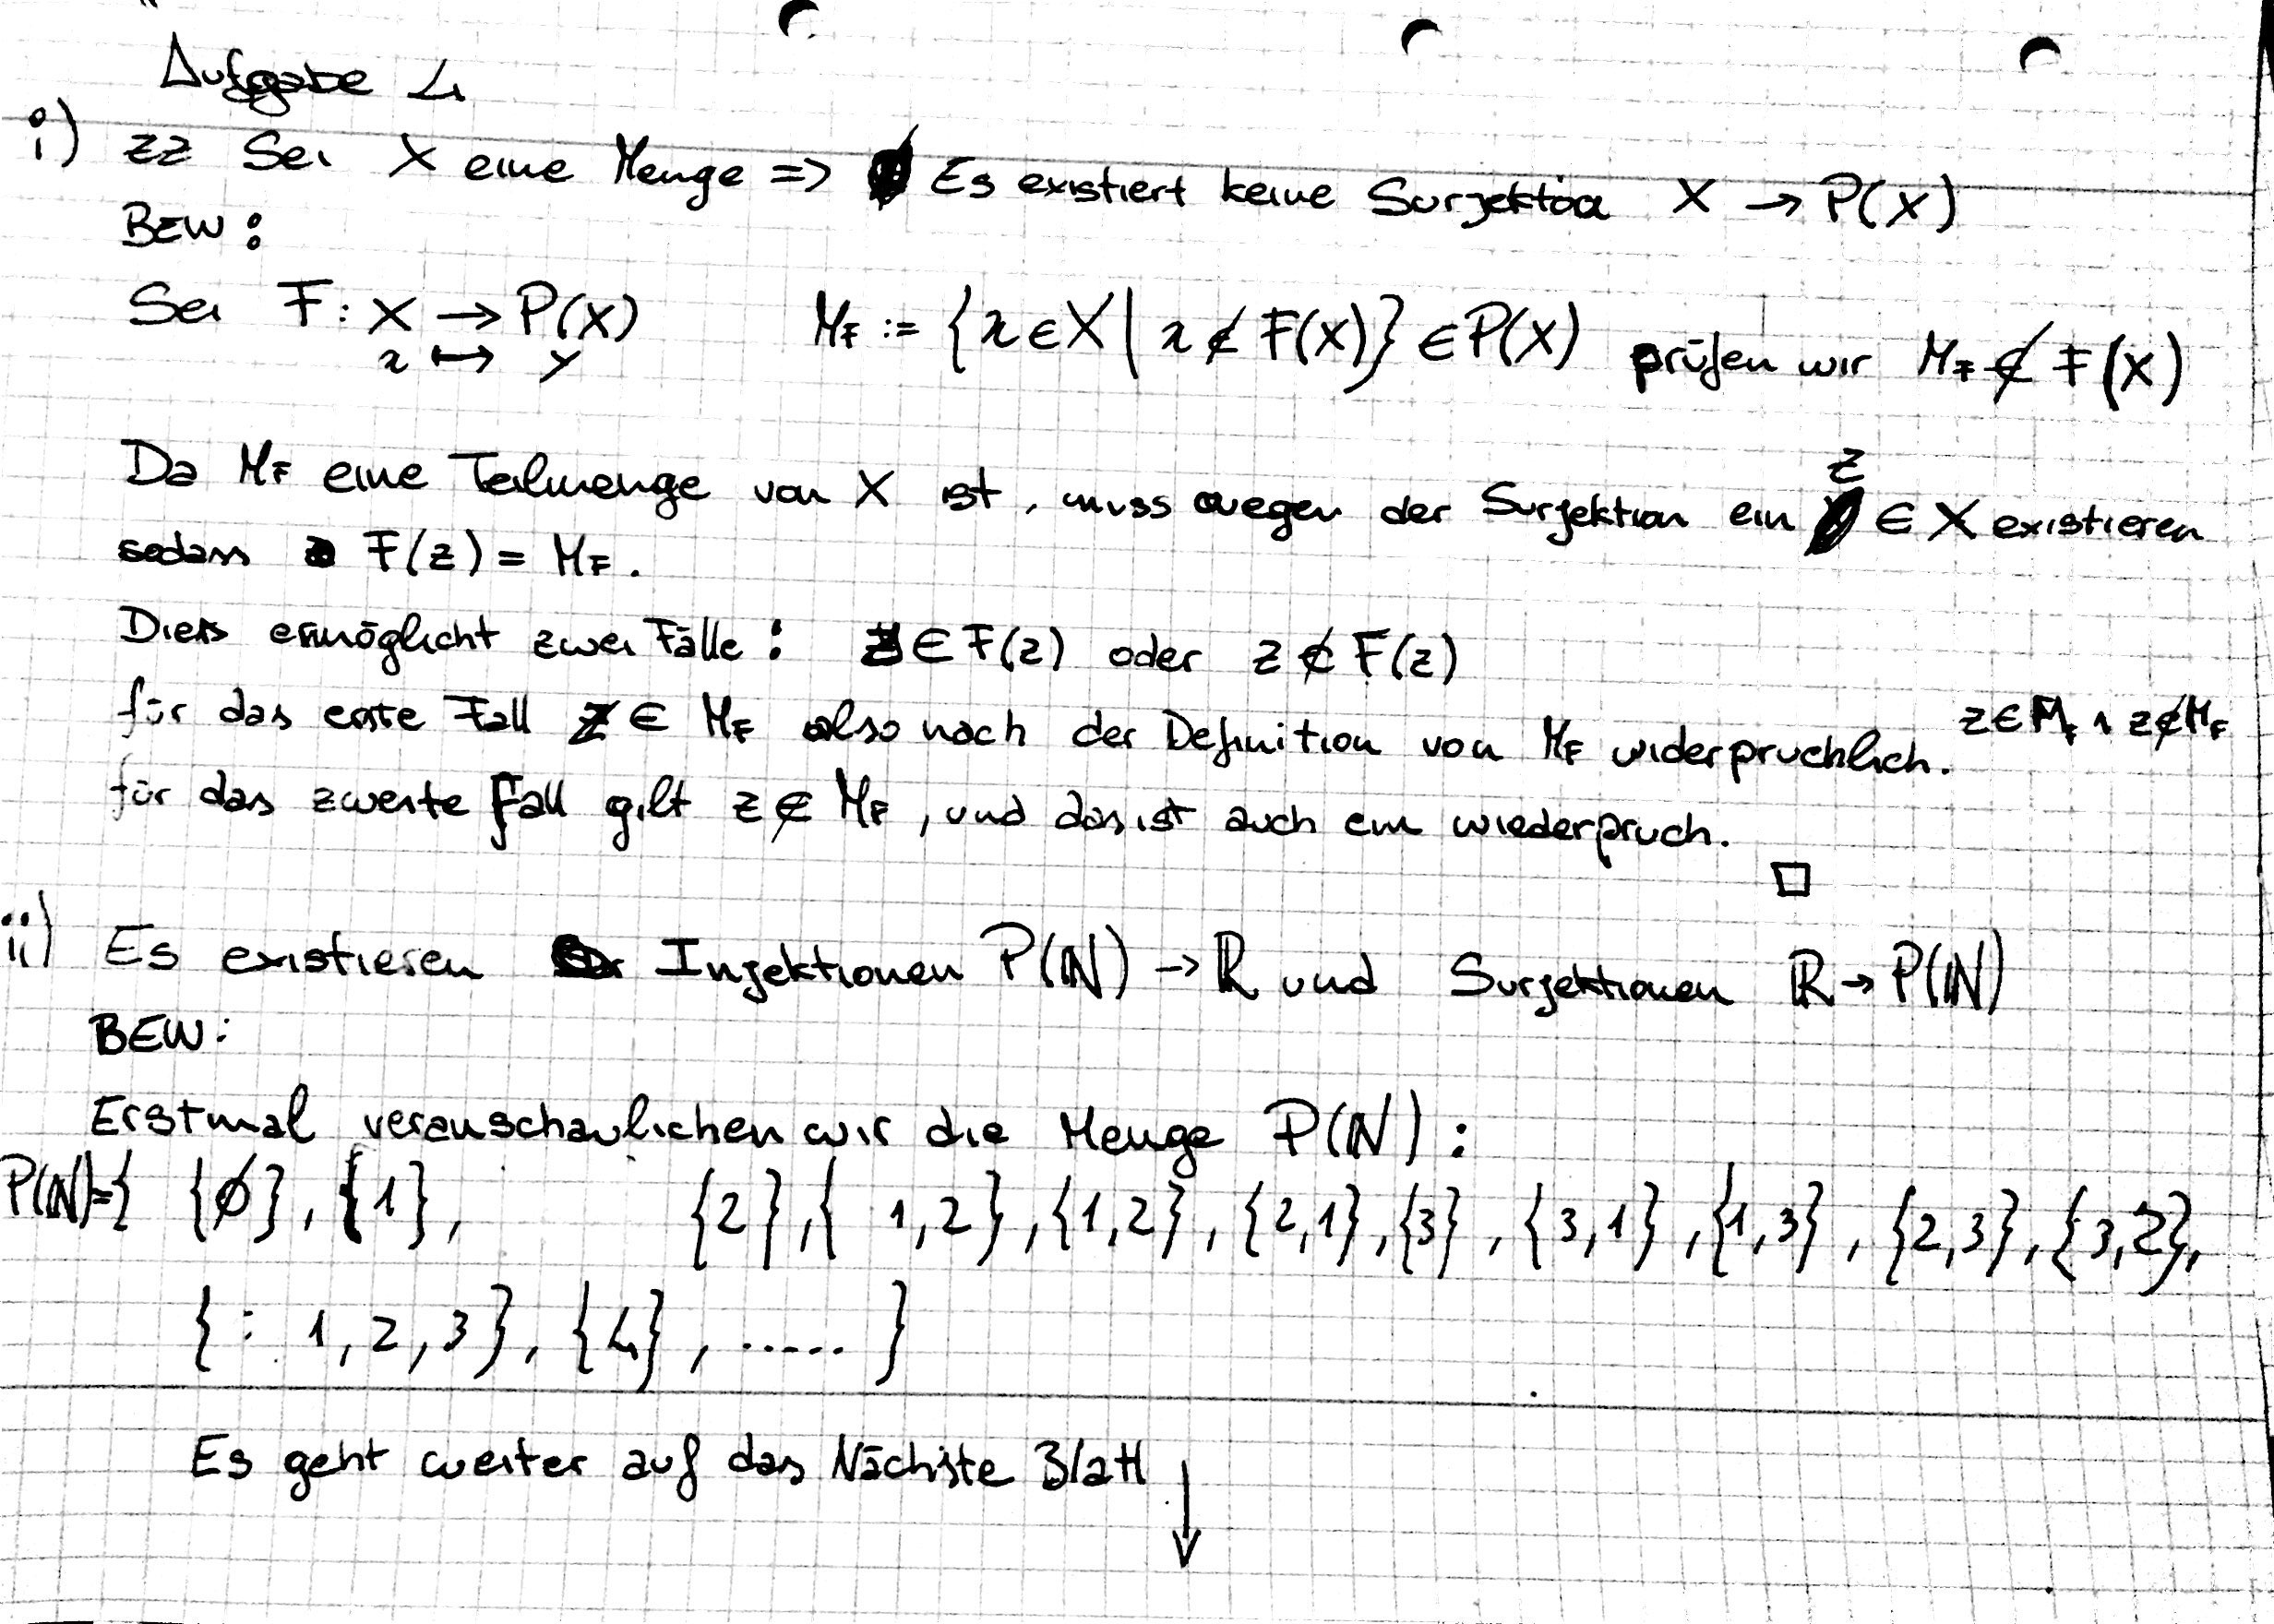 Aufgabe 4
i) zz Sei X eine Menge => Es existiert keine Surjektion X → P(X)
BEW:
Sei F: X → P(X) M_F := {x ∈ X | x ∉ F(X)} ∈ P(X) prüfen wir M_F ∉ F(X)
x ↦ y
Da M_F eine Teilmenge von X ist, muss wegen der Surjektion ein z ∈ X existieren
sodass F(z) = M_F.
Dies ermöglicht zwei Fälle: z ∈ F(z) oder z ∉ F(z)
für das erste Fall z ∈ M_F also nach der Definition von M_F widerpruchlich. z ∈ M_F ∧ z ∉ M_F
für das zweite Fall gilt z ∉ M_F, und das ist auch ein wiederpruch.
□
ii) Es existieren Injektionen P(ℕ) → ℝ und Surjektionen ℝ → P(ℕ)
BEW:
Erstmal veranschaulichen wir die Menge P(ℕ):
P(ℕ)={ {∅}, {1}, {2}, { 1,2}, {1,2}, {2,1}, {3}, {3,1}, {1,3}, {2,3}, {3,2},
{: 1,2,3}, {4}, ..... }
Es geht weiter auf das Nächste Blatt ↓